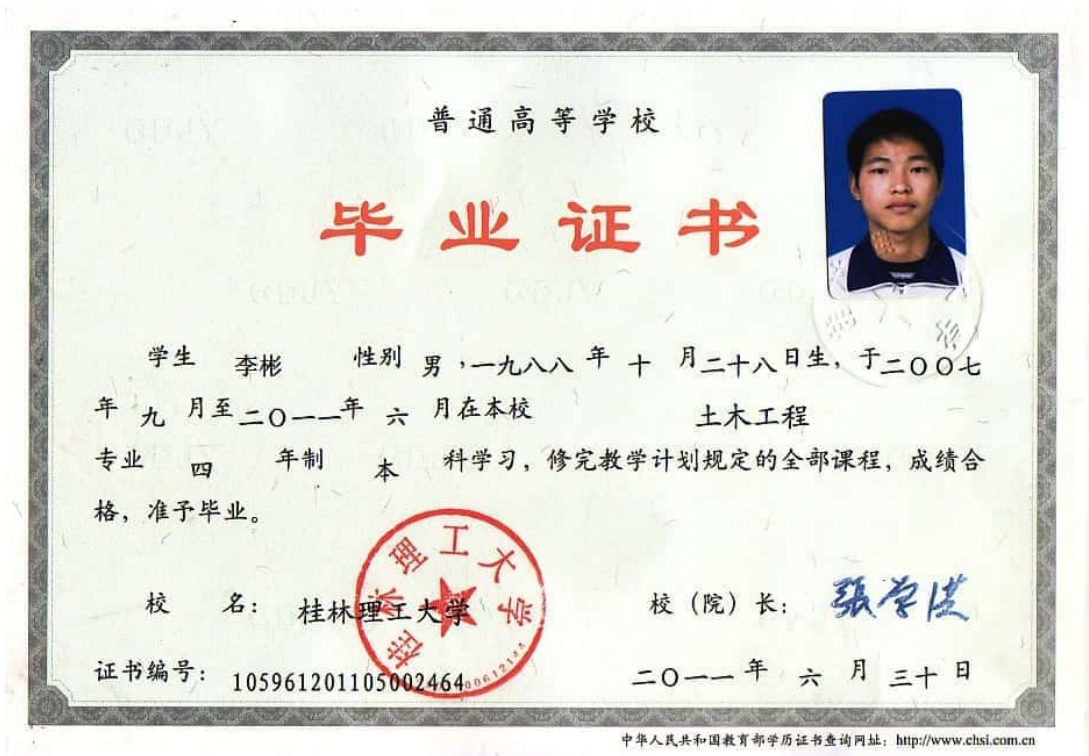 普通高等学校
毕业证书
学生 李彬 性别 男，一九八八年 十 月二十八日生，于二〇〇七
年 九 月至二〇一一年 六 月在本校 土木工程
专业 四 年制 本 科学习，修完教学计划规定的全部课程，成绩合
格，准予毕业。
校 名：桂林理工大学
桂林理工大学
校（院）长：張学洪
证书编号：105961201105002464
二〇一一年 六 月 三十 日
中华人民共和国教育部学历证书查询网址：http://www.chsi.com.cn